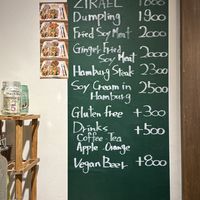 ZIRAEL 1800
Dumpling 1900
Fried Soy Meat 2000
Ginger Fried Soy Meat 2000
Hamburg Steak 2300
Soy Cream in Hamburg 2500
Gluten free +300
Drinks +500
Coffee・Tea
Apple・Orange
Vegan Beer +800